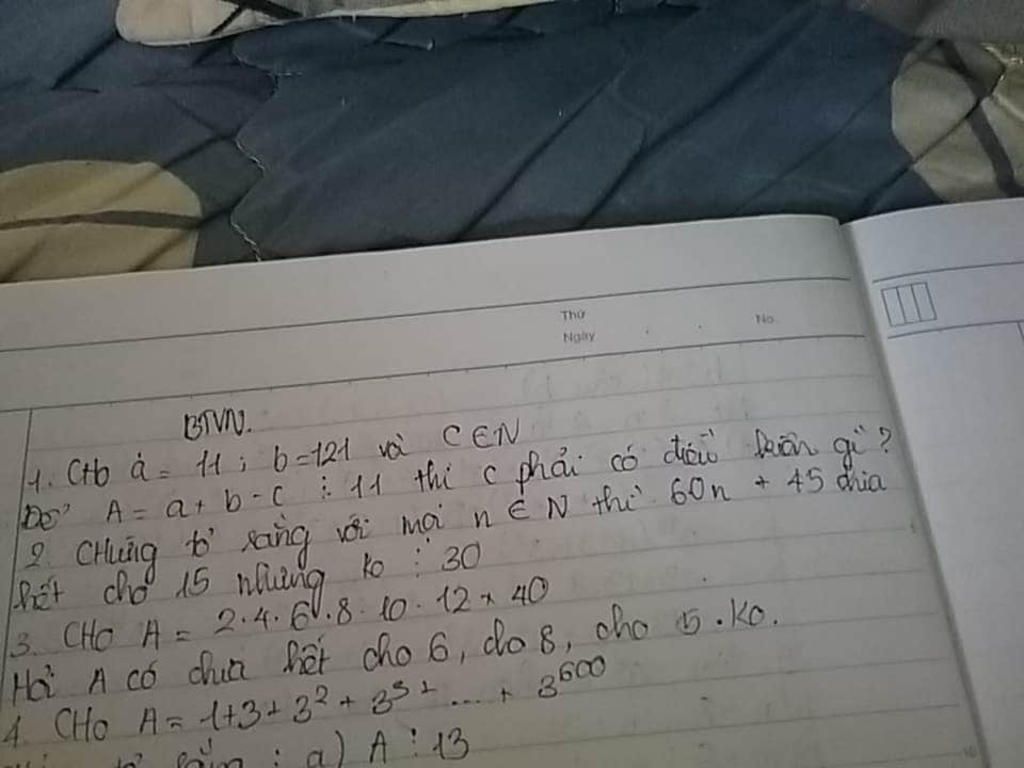 Thứ
Ngày
No.
BTVN.
1. CHO a = 11 ; b = 121 và C ∈ N
Để A = a + b - c ⋮ 11 thì c phải có điều kiện gì ?
2. CHứng tỏ rằng với mọi n ∈ N thì 60n + 45 chia
hết cho 15 nhưng ko ⋮ 30
3. CHO A = 2.4.6.8.10.12 + 40
Hỏi A có chia hết cho 6, cho 8, cho 5. Ko.
4. CHO A = 1+3+3² + 3³ + .... + 3⁶⁰⁰
tỏ rằng : a) A ⋮ 13